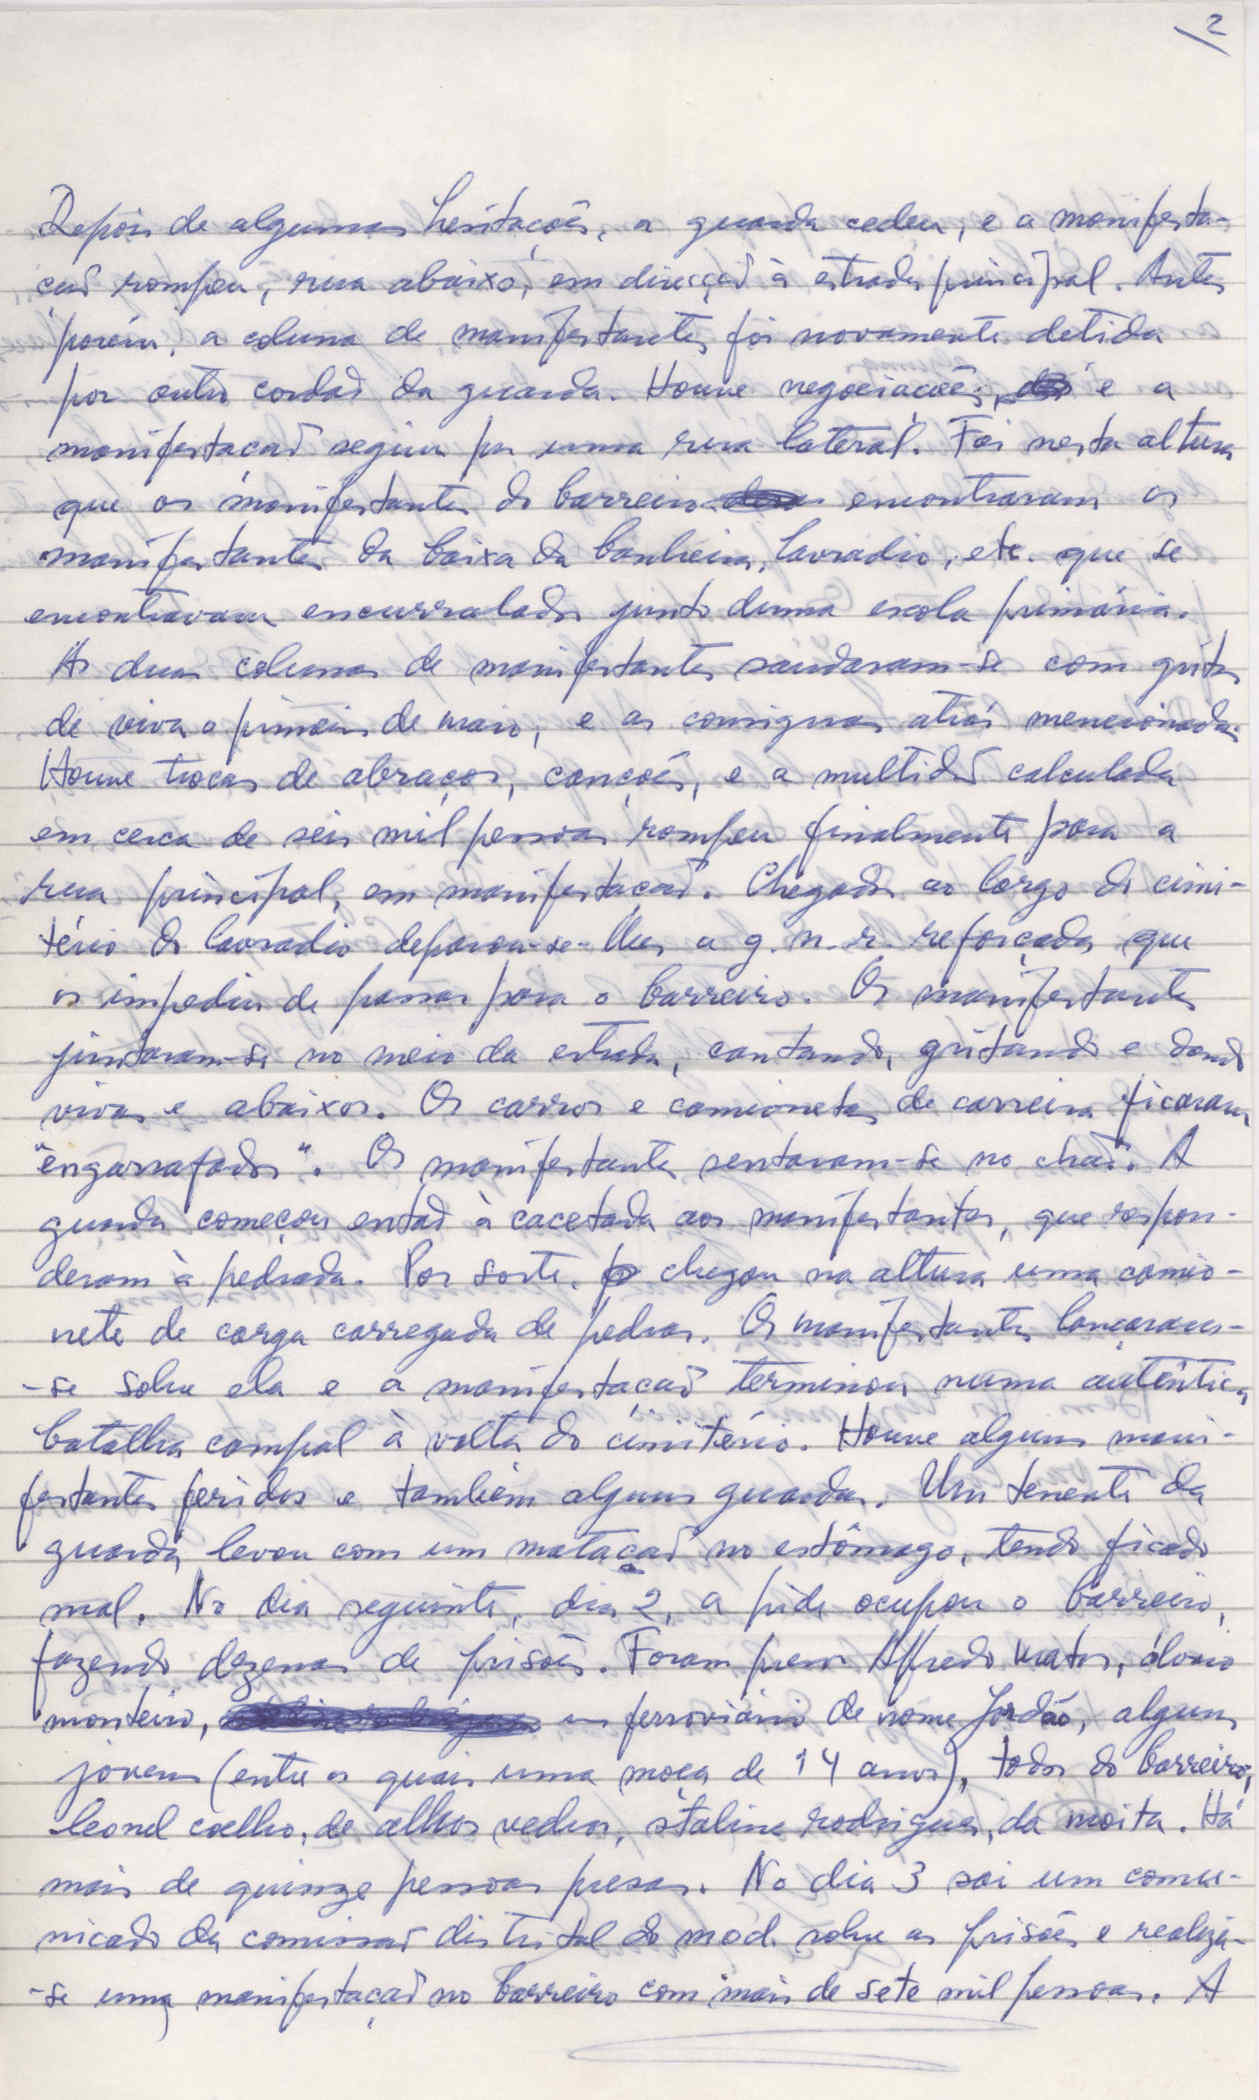 2
Depois de algumas hesitações, a guarda cedeu, e a manifesta-
ção rompeu, rua abaixo, em direcção à estrada principal. Antes
porém, a coluna de manifestantes foi novamente detida
por outro cordão da guarda. Houve negociações, e a
manifestação seguiu por uma rua lateral. Foi nesta altura
que os manifestantes do barreiro encontraram os
manifestantes da baixa da banheira, lavradio, etc. que se
encontravam encurralados junto duma escola primária.
As duas colunas de manifestantes saudaram-se com gritos
de viva o primeiro de maio, e as consignas atrás mencionadas
Houve trocas de abraços, canções, e a multidão calculada
em cerca de seis mil pessoas rompeu finalmente para a
rua principal, em manifestação. Chegados ao largo do cimi-
tério do lavradio deparou-se-lhes a g.n.r. reforçada que
os impediu de passar para o barreiro. Os manifestantes
juntaram-se no meio da estrada, cantando, gritando e dando
vivas e abaixos. Os carros e camionetas de carreira ficaram
"engarrafados". Os manifestantes sentaram-se no chão. A
guarda começou então à cacetada aos manifestantes, que respon-
deram à pedrada. Por sorte, chegou na altura uma camio-
nete de carga carregada de pedras. Os manifestantes lançaram-
-se sobre ela e a manifestação terminou numa autêntica
batalha campal à volta do cimitério. Houve alguns mani-
festantes feridos e também alguns guardas. Um tenente da
guarda levou com um matacão no estômago, tendo ficado
mal. No dia seguinte, dia 2, a pide ocupou o barreiro,
fazendo dezenas de prisões. Foram presos Alfredo Matos, álvaro
monteiro, um ferroviário de nome Jordão, alguns
jovens (entre os quais uma moça de 14 anos), todos do barreiro,
leonel coelho, de alhos vedros, staline rodrigues, da moita. Há
mais de quinze pessoas presas. No dia 3 sai um comu-
nicado da comissão distrital do mod. sobre as prisões e realiza-
-se uma manifestação no barreiro com mais de sete mil pessoas. A